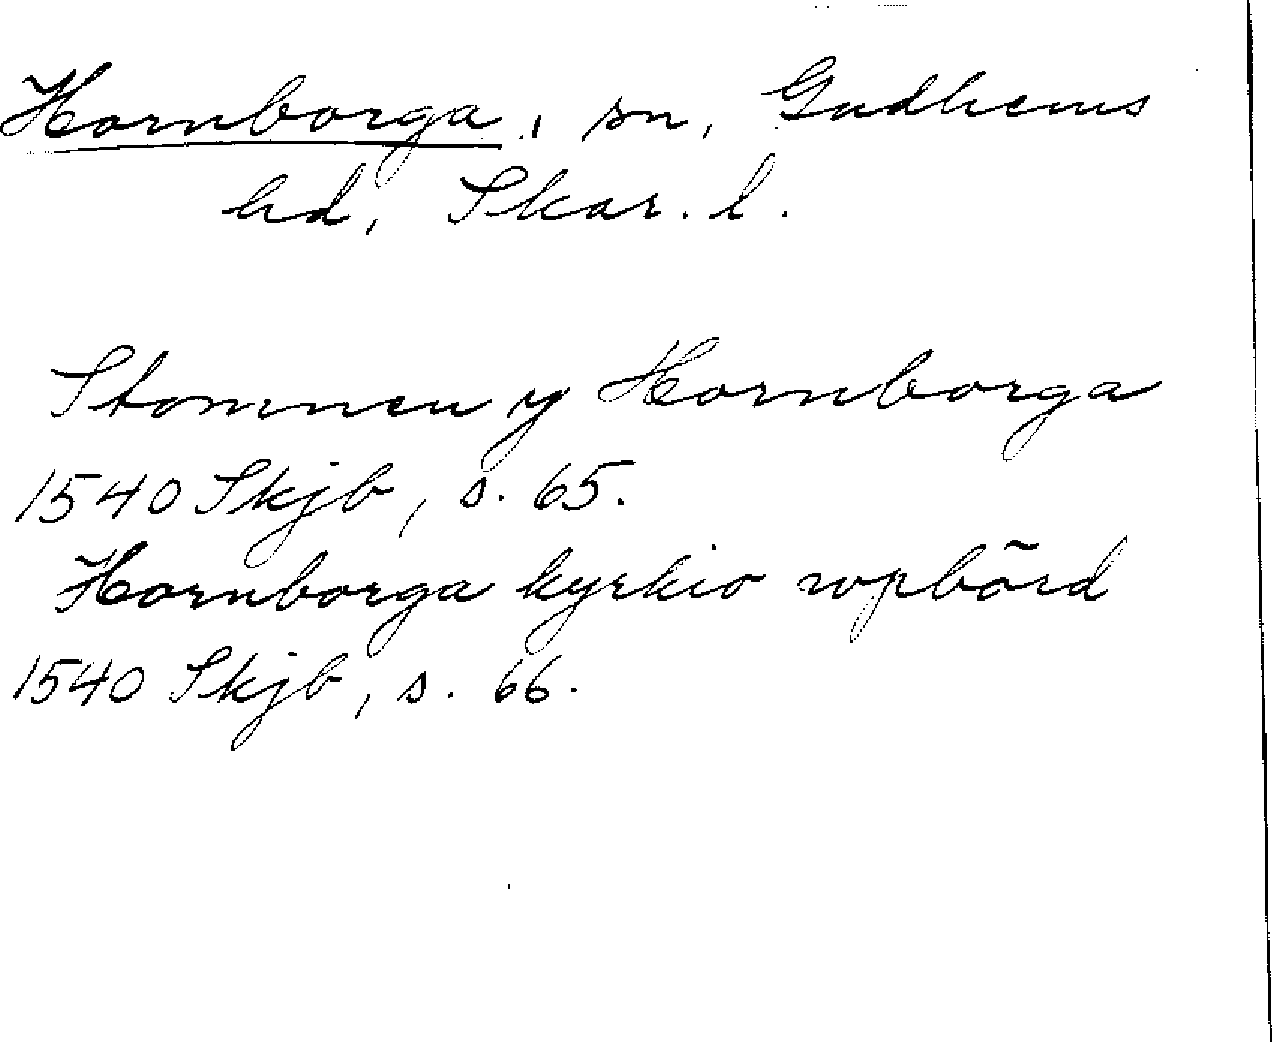 Hornborga, sn, Gudhems
hd, Skar. l.
Stommen y Hornborga
1540 Skjb, s. 65.
Hornborga kyrkio wpbörd
1540 Skjb, s. 66.